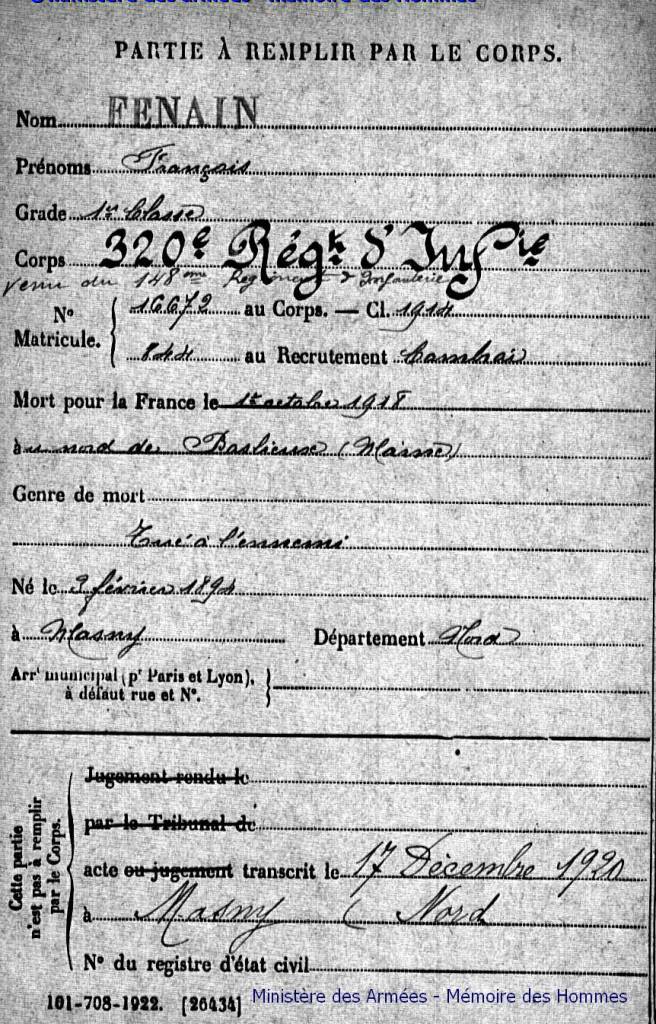 © Ministère des Armées - Mémoire des Hommes
PARTIE À REMPLIR PAR LE CORPS.
Nom FENAIN
Prénoms François
Grade 1re Classe
Corps 320e Régt d'Infie
venu du 148eme Régiment d'Infanterie
No Matricule. { 16672 au Corps. — Cl. 1914
844 au Recrutement Cambrai
Mort pour la France le 1er octobre 1918
au nord de Baslieuse (Marne)
Genre de mort
Tué à l'ennemi
Né le 3 février 1894
à Masny Département Nord
Arrt municipal (pr Paris et Lyon), à défaut rue et No. }
Cette partie n'est pas à remplir par le Corps.
Jugement rendu le
par le Tribunal de
acte ou jugement transcrit le 17 Décembre 1920
à Masny ( Nord
No du registre d'état civil
101-708-1922. [26434] Ministère des Armées - Mémoire des Hommes